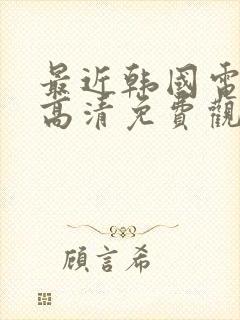 最近韩國電
高清免費觀
顧言希